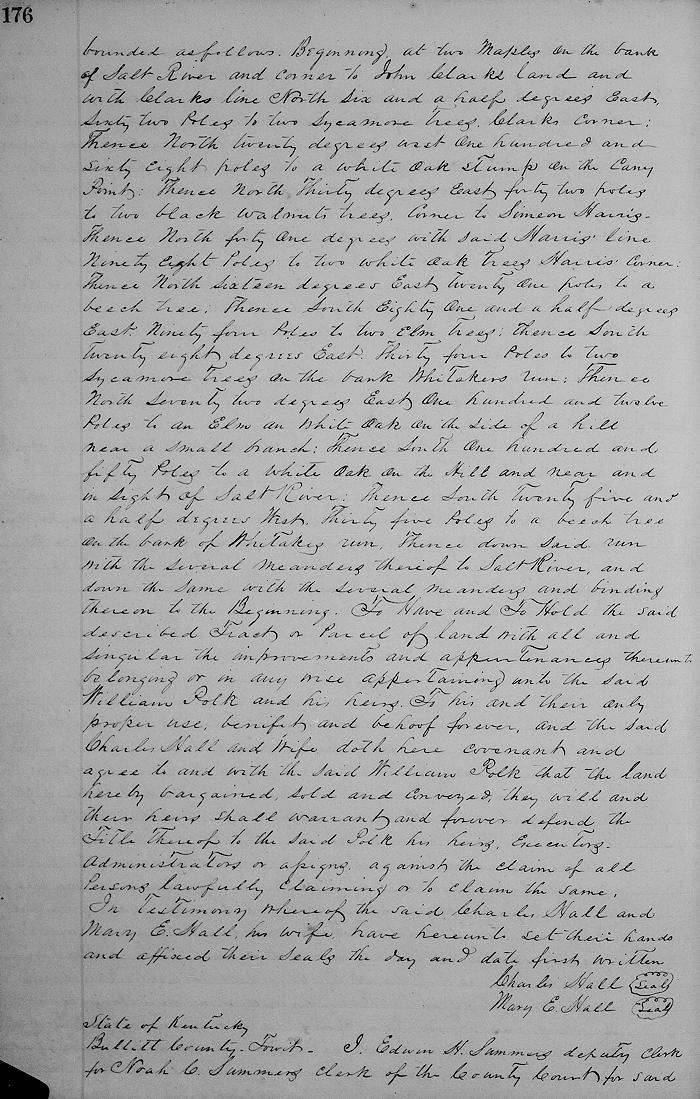 176
bounded as follows. Beginning, at two Maples on the bank
of Salt River and corner to John Clarks land and
with Clarks line North Six and a half degrees East,
Sixty two Poles to two Sycamore trees, Clarks Corner;
Thence North twenty degrees west One hundred and
Sixty Eight poles to a white Oak Stump on the Cany
Point; Thence North Thirty degrees East forty two poles
to two black walnuts trees, Corner to Simeon Harris-
Thence North forty One degrees with said Harris' line
Ninety Eight Poles to two white Oak trees Harris' Corner:
Thence North Sixteen degrees East Twenty One poles to a
beech tree; Thence South Eighty One and a half degrees
East. Ninety four Poles to two Elm trees; Thence South
Twenty eight degrees East. Thirty four Poles to two
Sycamore trees on the bank Whitakers run; Thence
North Seventy two degrees East One hundred and twelve
Poles to an Elm an White Oak on the side of a hill
near a small branch; Thence South One hundred and
fifty Poles to a White Oak on the Hill and near and
in sight of Salt River; Thence South Twenty five and
a half degrees West, Thirty five Poles to a beech tree
on the bank of Whitakers run, Thence down said run
with the several meanders thereof to Salt River, and
down the same with the several meanders and binding
thereon to the Beginning. To Have and To Hold the said
described Tract or Parcel of land with all and
singular the improvements and appurtenances thereunto
belonging or in any wise appertaining unto the said
William Polk and his heirs. To his and their only
proper use, benifit and behoof forever, and the said
Charles Hall and Wife doth here covenant and
agree to and with the said William Polk that the land
hereby bargained, sold and conveyed, they will and
their heirs shall warrant and forever defend the
Title thereof to the said Polk his heirs, Executors-
Administrators or assigns. against the claim of all
Persons lawfully Claiming or to claim the same.
In Testimony whereof the said Charles Hall and
Mary E. Hall, his wife, have hereunto set their hands
and affixed their seals the day and date first written
Charles Hall (Seal)
Mary E. Hall (Seal)
State of Kentucky
Bullitt County- Towit- I. Edwin H. Summers deputy Clerk
for Noah C. Summers Clerk of the County Court for said